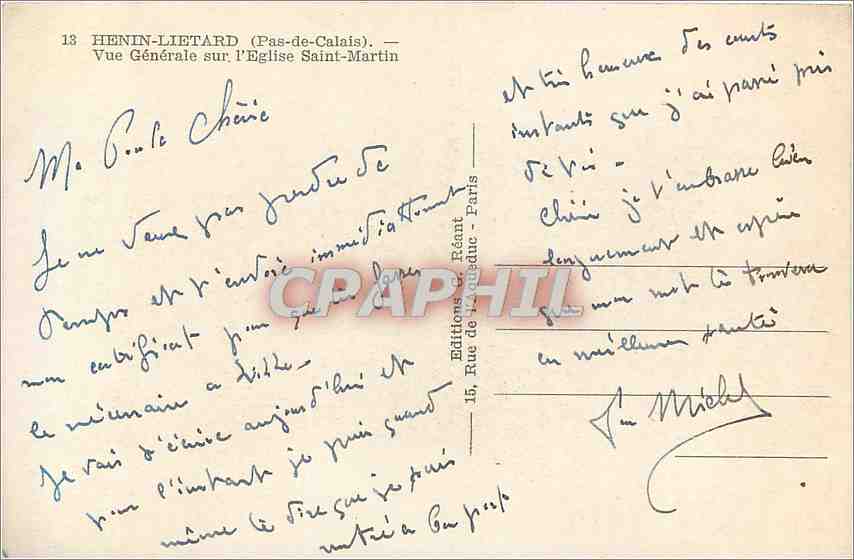 13 HENIN-LIETARD (Pas-de-Calais). —
Vue Générale sur l'Eglise Saint-Martin
Ma Poule Chérie
Je ne veux pas perdre de
temps et t'envoie immédiatement
mon certificat pour que tu fasses
le nécessaire a Lille.
Je vais t'écrire aujourd'hui et
pour l'instant je puis quand
même te dire que je suis
rentré a bon port
et très heureux des courts
instants que j'ai passé près
de toi.
Chérie je t'embrasse bien
longuement et espère
que mon mot te trouvera
en meilleure santé
Ton Michel
Editions G. Réant
15, Rue de l'Aqueduc - Paris
CPAPHIL